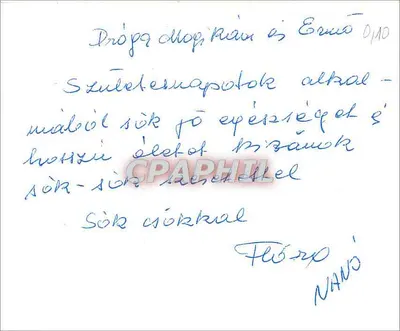 Drága Mogikám és Ernő 0,10
Születésnapotok alkal-
mából sok jó egészséget és
hosszú életet kívánok
sok-sok szeretettel
CPAPHIL
Sok csókkal
Flóra
NANÓ